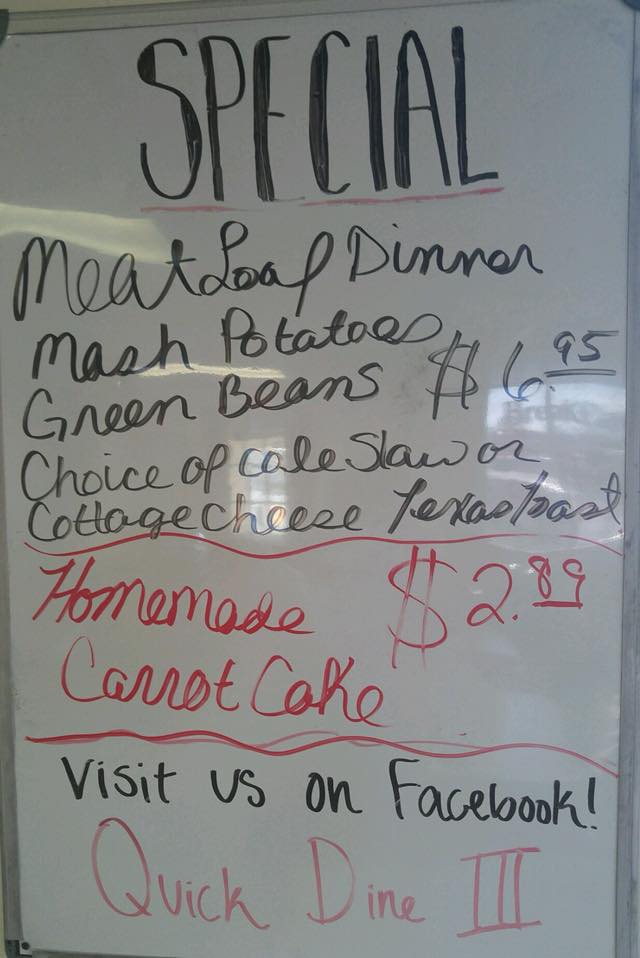 SPECIAL
Meat Loaf Dinner
Mash Potatoes
Green Beans $6.95
Choice of cole Slaw or
Cottage Cheese Texas Toast
Homemade $2.89
Carrot Cake
Visit us on Facebook!
Quick Dine III